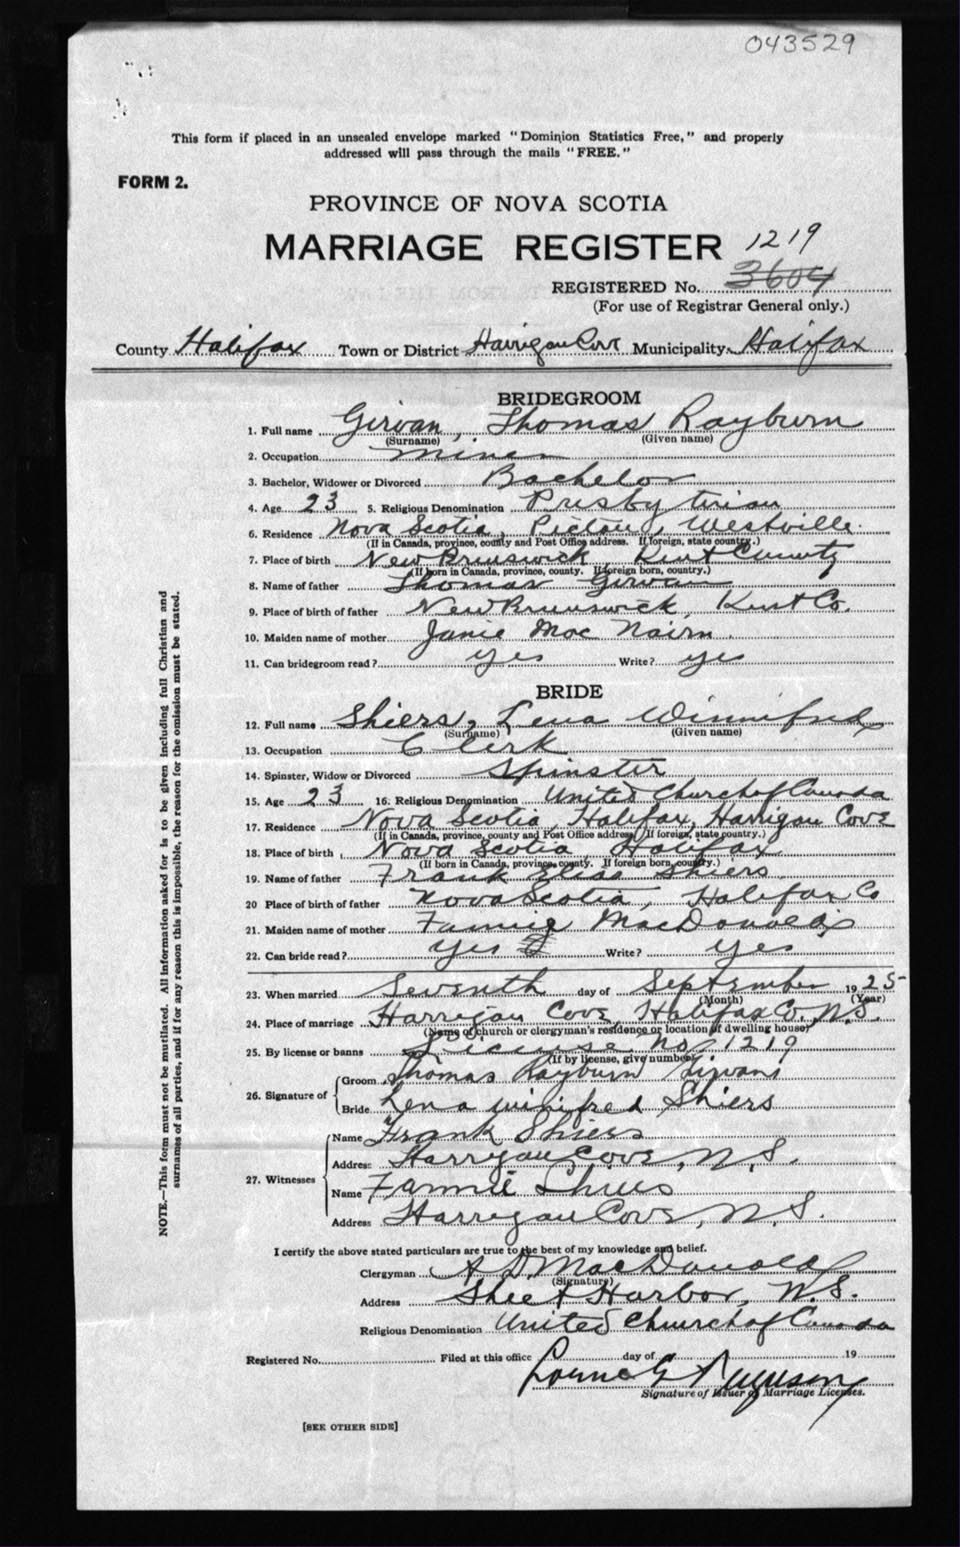 043529
This form if placed in an unsealed envelope marked "Dominion Statistics Free," and properly
addressed will pass through the mails "FREE."
FORM 2.
PROVINCE OF NOVA SCOTIA
MARRIAGE REGISTER 1219
REGISTERED No. 3604
(For use of Registrar General only.)
County Halifax Town or District Harrigan Cove Municipality Halifax
BRIDEGROOM
1. Full name Girvan, Thomas Rayburn
(Surname) (Given name)
2. Occupation miner
3. Bachelor, Widower or Divorced Bachelor
4. Age 23 5. Religious Denomination Presbyterian
6. Residence Nova Scotia, Pictou, Westville.
(If in Canada, province, county and Post Office address. If foreign, state country.)
7. Place of birth New Brunswick Kent County
(If born in Canada, province, county. If foreign born, country.)
8. Name of father Thomas Girvan
9. Place of birth of father New Brunswick, Kent Co.
10. Maiden name of mother Janie Mac Nairn.
11. Can bridegroom read? yes Write? yes
BRIDE
12. Full name Shiers, Lena Winnifred
(Surname) (Given name)
13. Occupation Clerk
14. Spinster, Widow or Divorced Spinster
15. Age 23 16. Religious Denomination United Church of Canada
17. Residence Nova Scotia, Halifax, Harrigan Cove
(If in Canada, province, county and Post Office address. If foreign, state country.)
18. Place of birth Nova Scotia, Halifax
(If born in Canada, province, county. If foreign born, country.)
19. Name of father Frank Shiers.
20 Place of birth of father Nova Scotia, Halifax Co
21. Maiden name of mother Fannie MacDonald
22. Can bride read? yes Write? yes
23. When married Seventh day of September 1925
(Month) (Year)
24. Place of marriage Harrigan Cove, Halifax Co. N.S.
(Name of church or clergyman's residence or location of dwelling house)
25. By license or banns License No. 1219
(If by license, give number)
26. Signature of Groom Thomas Rayburn Girvan
Bride Lena winifred Shiers
27. Witnesses Name Frank Shiers
Address Harrigan Cove, N.S.
Name Fannie Shiers
Address Harrigan Cove, N.S.
I certify the above stated particulars are true to the best of my knowledge and belief.
Clergyman A. D. MacDonald
(Signature)
Address Sheet Harbor, N.S.
Religious Denomination United Church of Canada
Registered No. Filed at this office day of 19
Lorne G
Signature of Issuer of Marriage Licenses.
[SEE OTHER SIDE]
NOTE.—This form must not be mutilated. All information asked for is to be given including full Christian and
surnames of all parties, and if for any reason this is impossible, the reason for the omission must be stated.